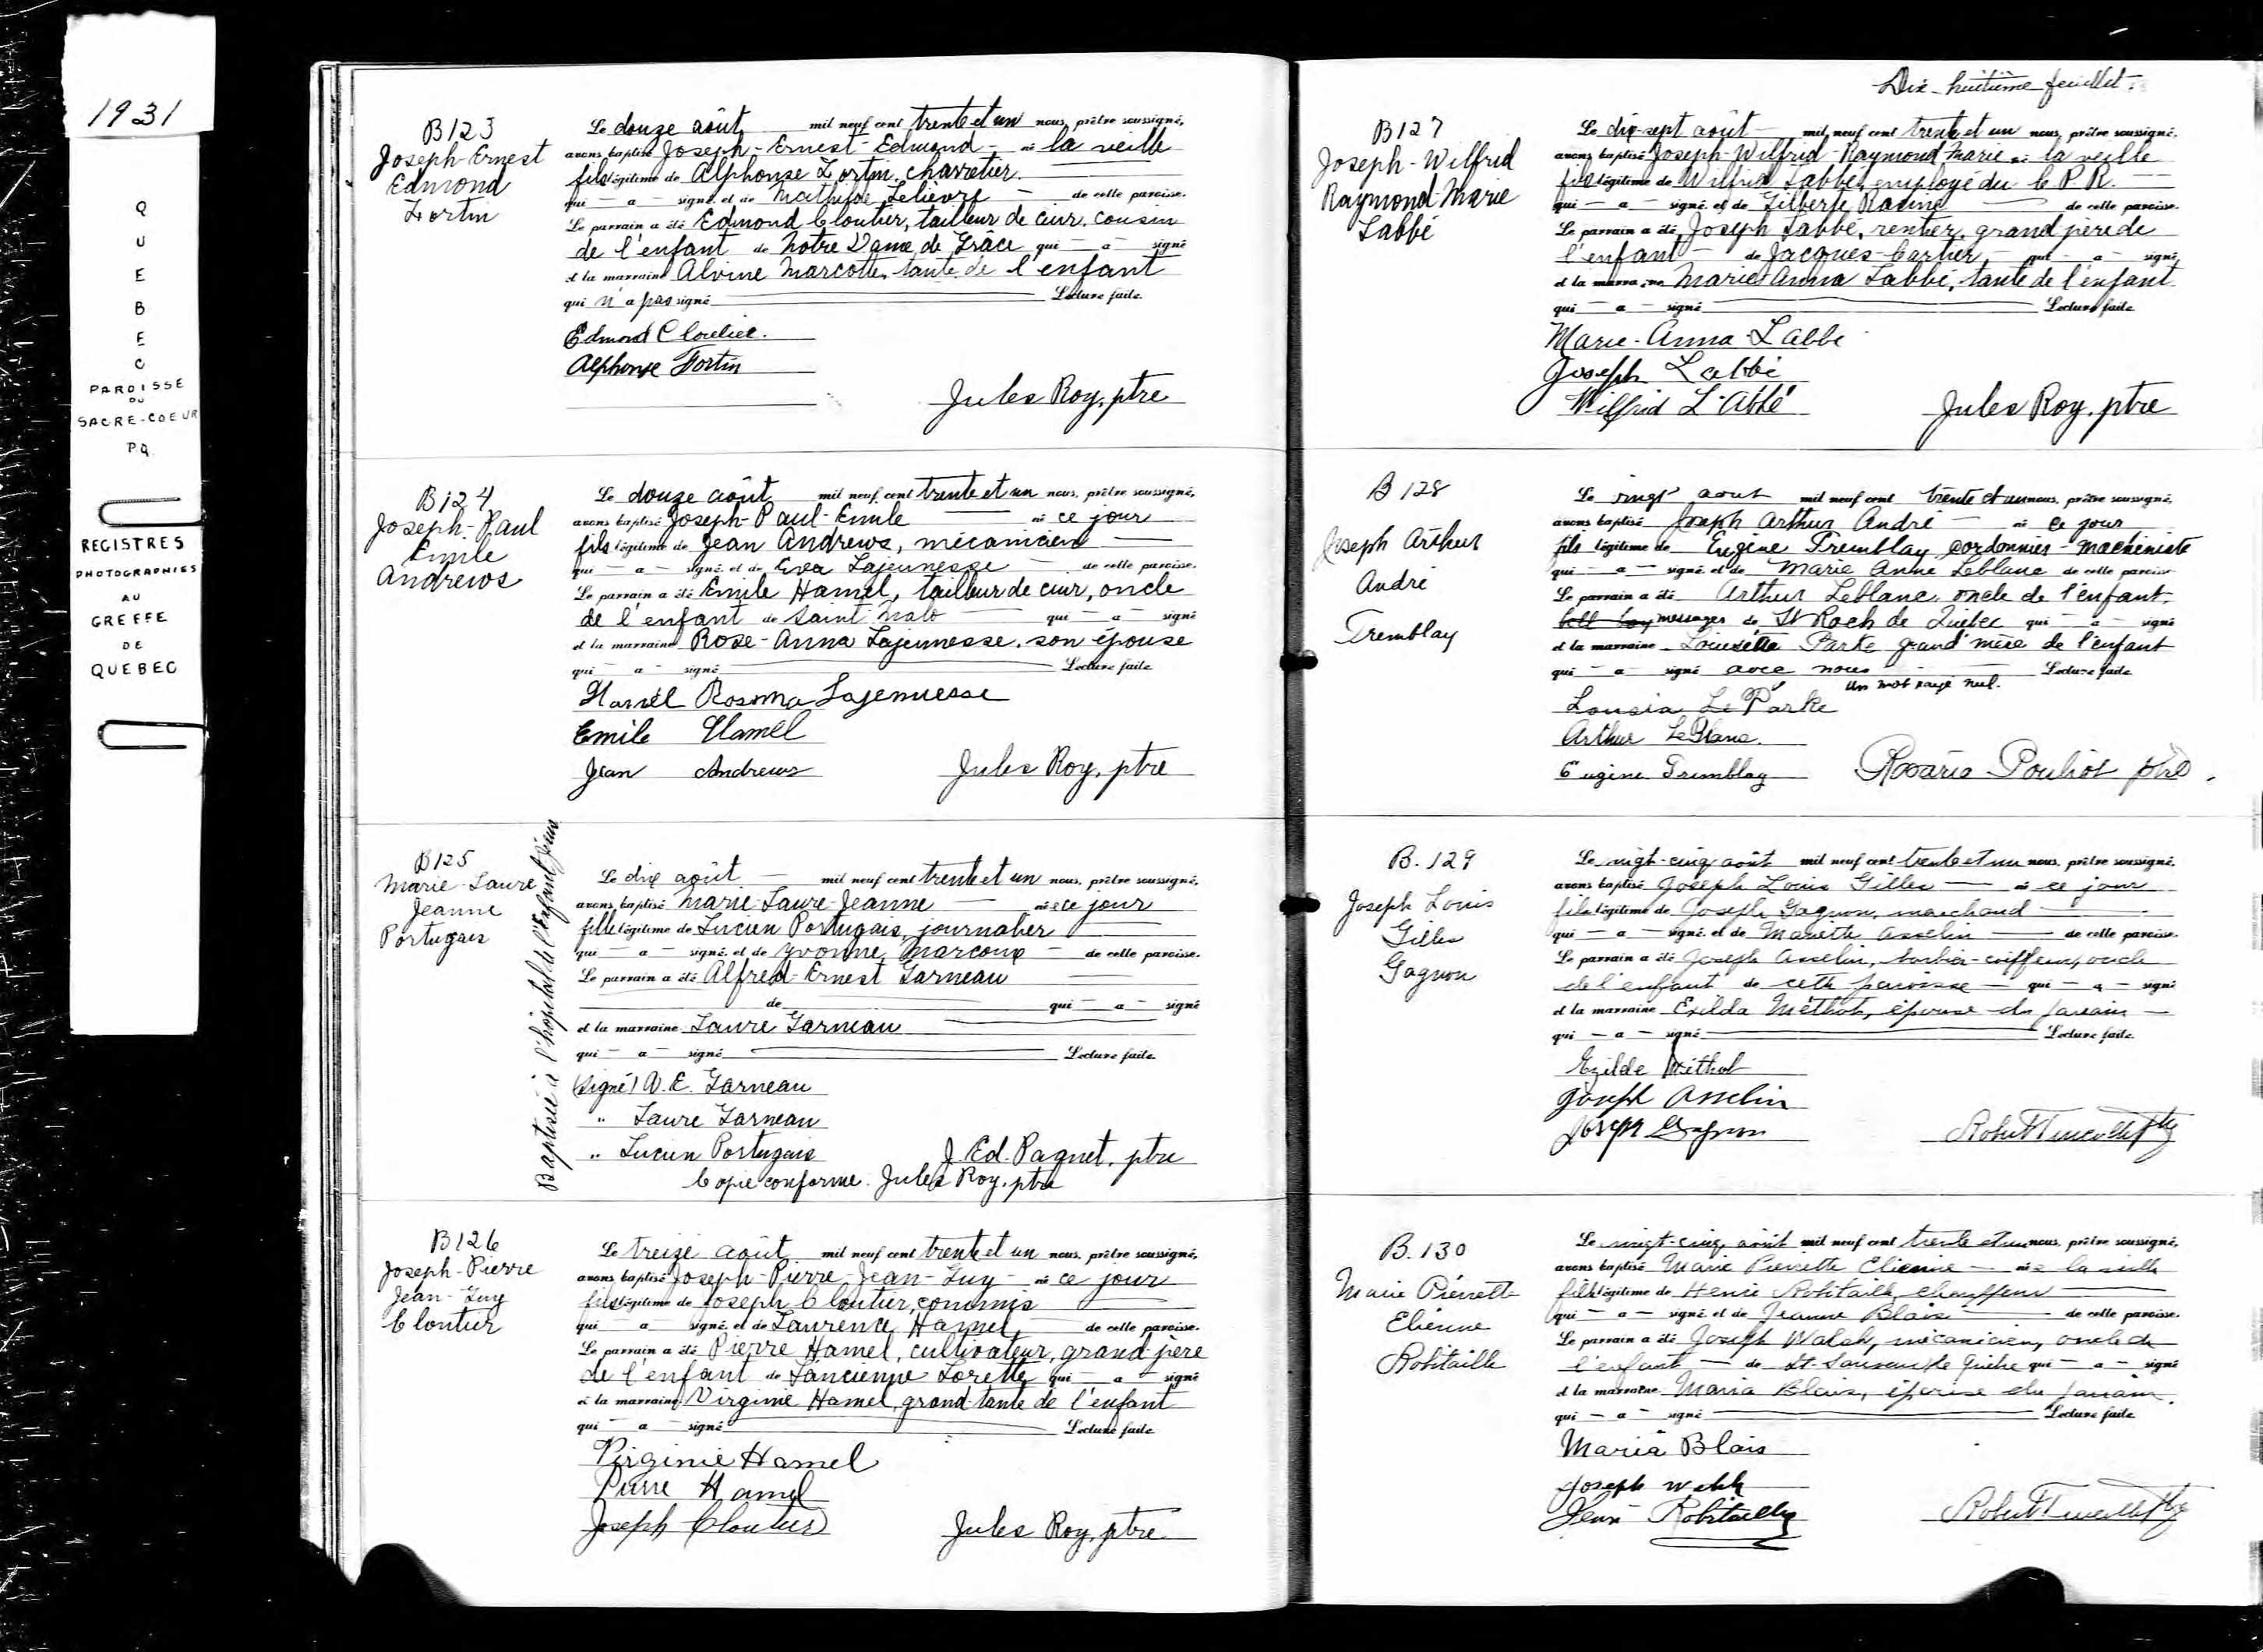 1931
QUEBEC
PAROISSE
DU
SACRE-COEUR
P.Q.
REGISTRES
PHOTOGRAPHIES
AU
GREFFE
DE
QUEBEC
B123
Joseph-Ernest
Edmond
Fortin
Le douze août mil neuf cent trente et un nous, prêtre soussigné,
avons baptisé Joseph-Ernest-Edmond - né la veille
fils légitime de Alphonse Fortin, charretier
qui - a - signé et de Mathilde Lelièvre - de cette paroisse.
Le parrain a été Edmond Cloutier, tailleur de cuir, cousin
de l'enfant de Notre Dame de Grâce qui - a - signé
et la marraine Alvine Marcotte, tante de l'enfant
qui n'a pas signé Lecture faite.
Edmond Cloutier.
Alphonse Fortin
Jules Roy, ptre
B124
Joseph-Paul
Emile
Andrews
Le douze août mil neuf cent trente et un nous, prêtre soussigné,
avons baptisé Joseph-Paul-Emile né ce jour
fils légitime de Jean Andrews, mécanicien
qui - a - signé et de Eva Lajeunesse de cette paroisse.
Le parrain a été Emile Hamel, tailleur de cuir, oncle
de l'enfant de Saint Malo qui - a - signé
et la marraine Rose-Anna Lajeunesse, son épouse
qui - a - signé Lecture faite
Hamel Rosanna Lajeunesse
Emile Hamel
Jean Andrews
Jules Roy, ptre
B125
Marie-Laure
Jeanne
Portugais
Baptisée à l'hôpital de l'Enfant Jésus
Le dix août - mil neuf cent trente et un nous, prêtre soussigné,
avons baptisé Marie-Laure-Jeanne née ce jour
fille légitime de Lucien Portugais, journalier
qui - a - signé et de Yvonne Marcoux - de cette paroisse.
Le parrain a été Alfred-Ernest Garneau
de qui - a - signé
et la marraine Laure Garneau
qui - a - signé Lecture faite
(signé) A. E. Garneau
" Laure Garneau
" Lucien Portugais
J. Ed. Paquet, ptre
Copie conforme. Jules Roy, ptre
B126
Joseph-Pierre
Jean-Guy
Cloutier
Le treize août mil neuf cent trente et un nous, prêtre soussigné,
avons baptisé Joseph-Pierre-Jean-Guy - né ce jour
fils légitime de Joseph Cloutier, commis
qui - a - signé et de Laurence Hamel de cette paroisse.
Le parrain a été Pierre Hamel, cultivateur, grand père
de l'enfant de L'ancienne Lorette qui - a - signé
et la marraine Virginie Hamel, grand-tante de l'enfant
qui - a - signé Lecture faite
Virginie Hamel
Pierre Hamel
Joseph Cloutier
Jules Roy, ptre
Dix-huitième feuillet.
B127
Joseph-Wilfrid
Raymond Marie
Labbé
Le dix-sept août mil neuf cent trente et un nous, prêtre soussigné,
avons baptisé Joseph-Wilfrid-Raymond Marie né la veille
fils légitime de Wilfrid Labbé, employé du C.P.R.
qui - a - signé et de Filberte Racine de cette paroisse.
Le parrain a été Joseph Labbé, rentier, grand père de
l'enfant - de Jacques-Cartier qui - a - signé
et la marraine Marie Anna Labbé, tante de l'enfant
qui - a - signé Lecture faite
Marie-Anna Labbé
Joseph Labbé
Wilfrid L'Abbé
Jules Roy, ptre
B 128
Joseph Arthur
André
Tremblay
Le vingt aout mil neuf cent trente et un nous, prêtre soussigné,
avons baptisé Joseph Arthur André - né ce jour
fils légitime de Eugène Tremblay cordonnier-machiniste
qui - a - signé et de Marie Anne Leblanc de cette paroisse
Le parrain a été Arthur Leblanc, oncle de l'enfant,
bell boy messager de St Roch de Québec qui - a - signé
et la marraine Louisette Parke grand'mère de l'enfant
qui - a - signé avec nous Lecture faite
Un mot rayé nul.
Lousia Le Parke
Arthur LeBlanc.
Eugène Tremblay
Rosario Pouliot ptre.
B. 129
Joseph Louis
Gilles
Gagnon
Le vingt-cinq août mil neuf cent trente et un nous, prêtre soussigné,
avons baptisé Joseph Louis Gilles - né ce jour
fils légitime de Joseph Gagnon, marchand
qui - a - signé et de Mariette Asselin de cette paroisse.
Le parrain a été Joseph Asselin, barbier-coiffeur, oncle
de l'enfant de cette paroisse - qui - a - signé
et la marraine Exilda Méthot, épouse du parrain
qui - a - signé Lecture faite.
Exilde Méthot
Joseph Asselin
Joseph Gagnon
B. 130
Marie Pierrette
Elienne
Robitaille
Le vingt-cinq août mil neuf cent trente et un nous, prêtre soussigné,
avons baptisé Marie Pierrette Elienne - née la veille
fille légitime de Henri Robitaille, chauffeur
qui - a - signé et de Jeanne Blais de cette paroisse.
Le parrain a été Joseph Walsh, mécanicien, oncle de
l'enfant - de St. Sauveur de Québec qui - a - signé
et la marraine Maria Blais, épouse du parrain.
qui - a - signé Lecture faite
Maria Blais
Joseph
Henri Robitaille